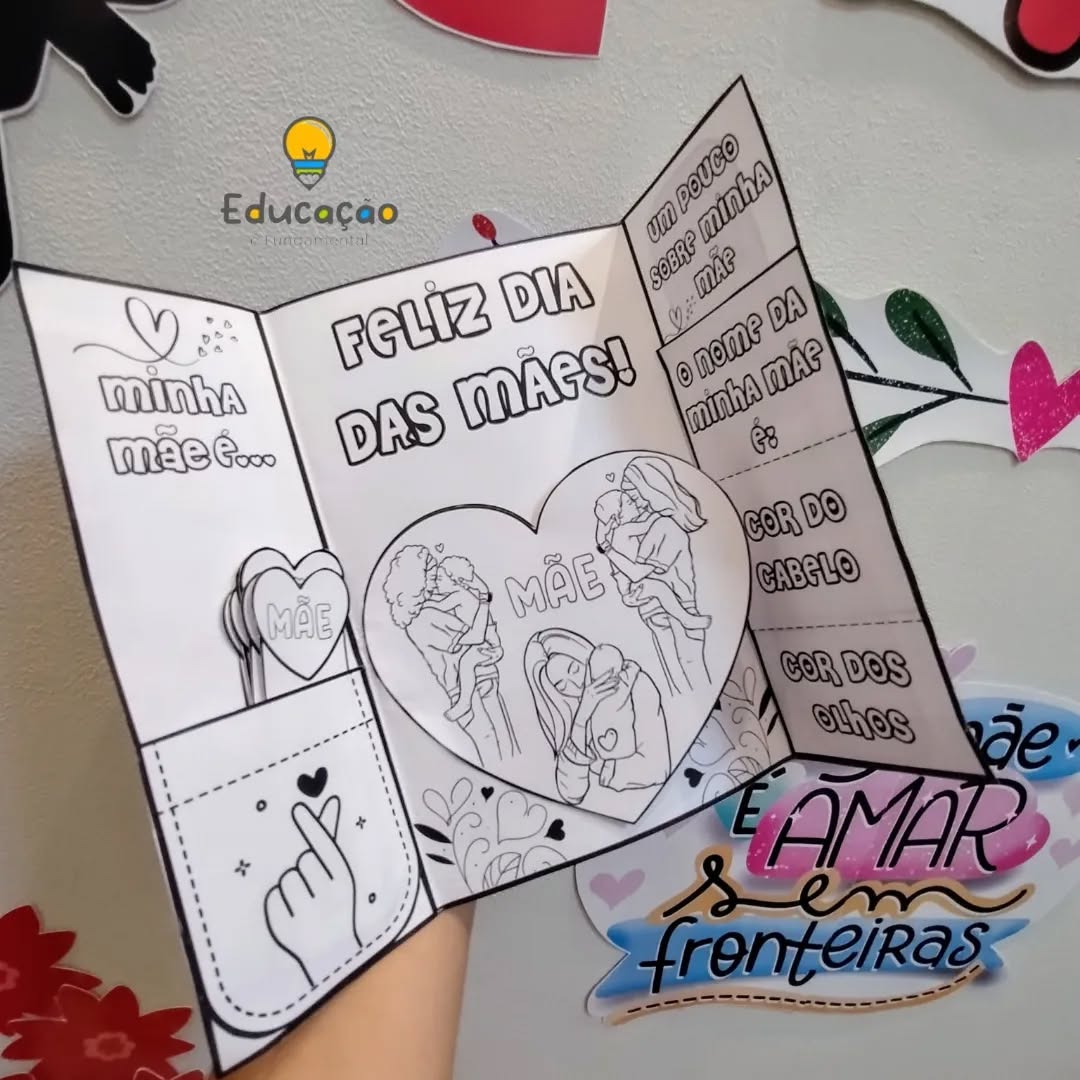 Educação
Fundamental
minha
mãe é...
MÃE
FELIZ DIA
DAS MÃES!
MÃE
UM POUCO
SOBRE MINHA
MÃE
O NOME DA
MINHA MÃE
É:
COR DO
CABELO
COR DOS
OLHOS
É AMAR
sem
fronteiras